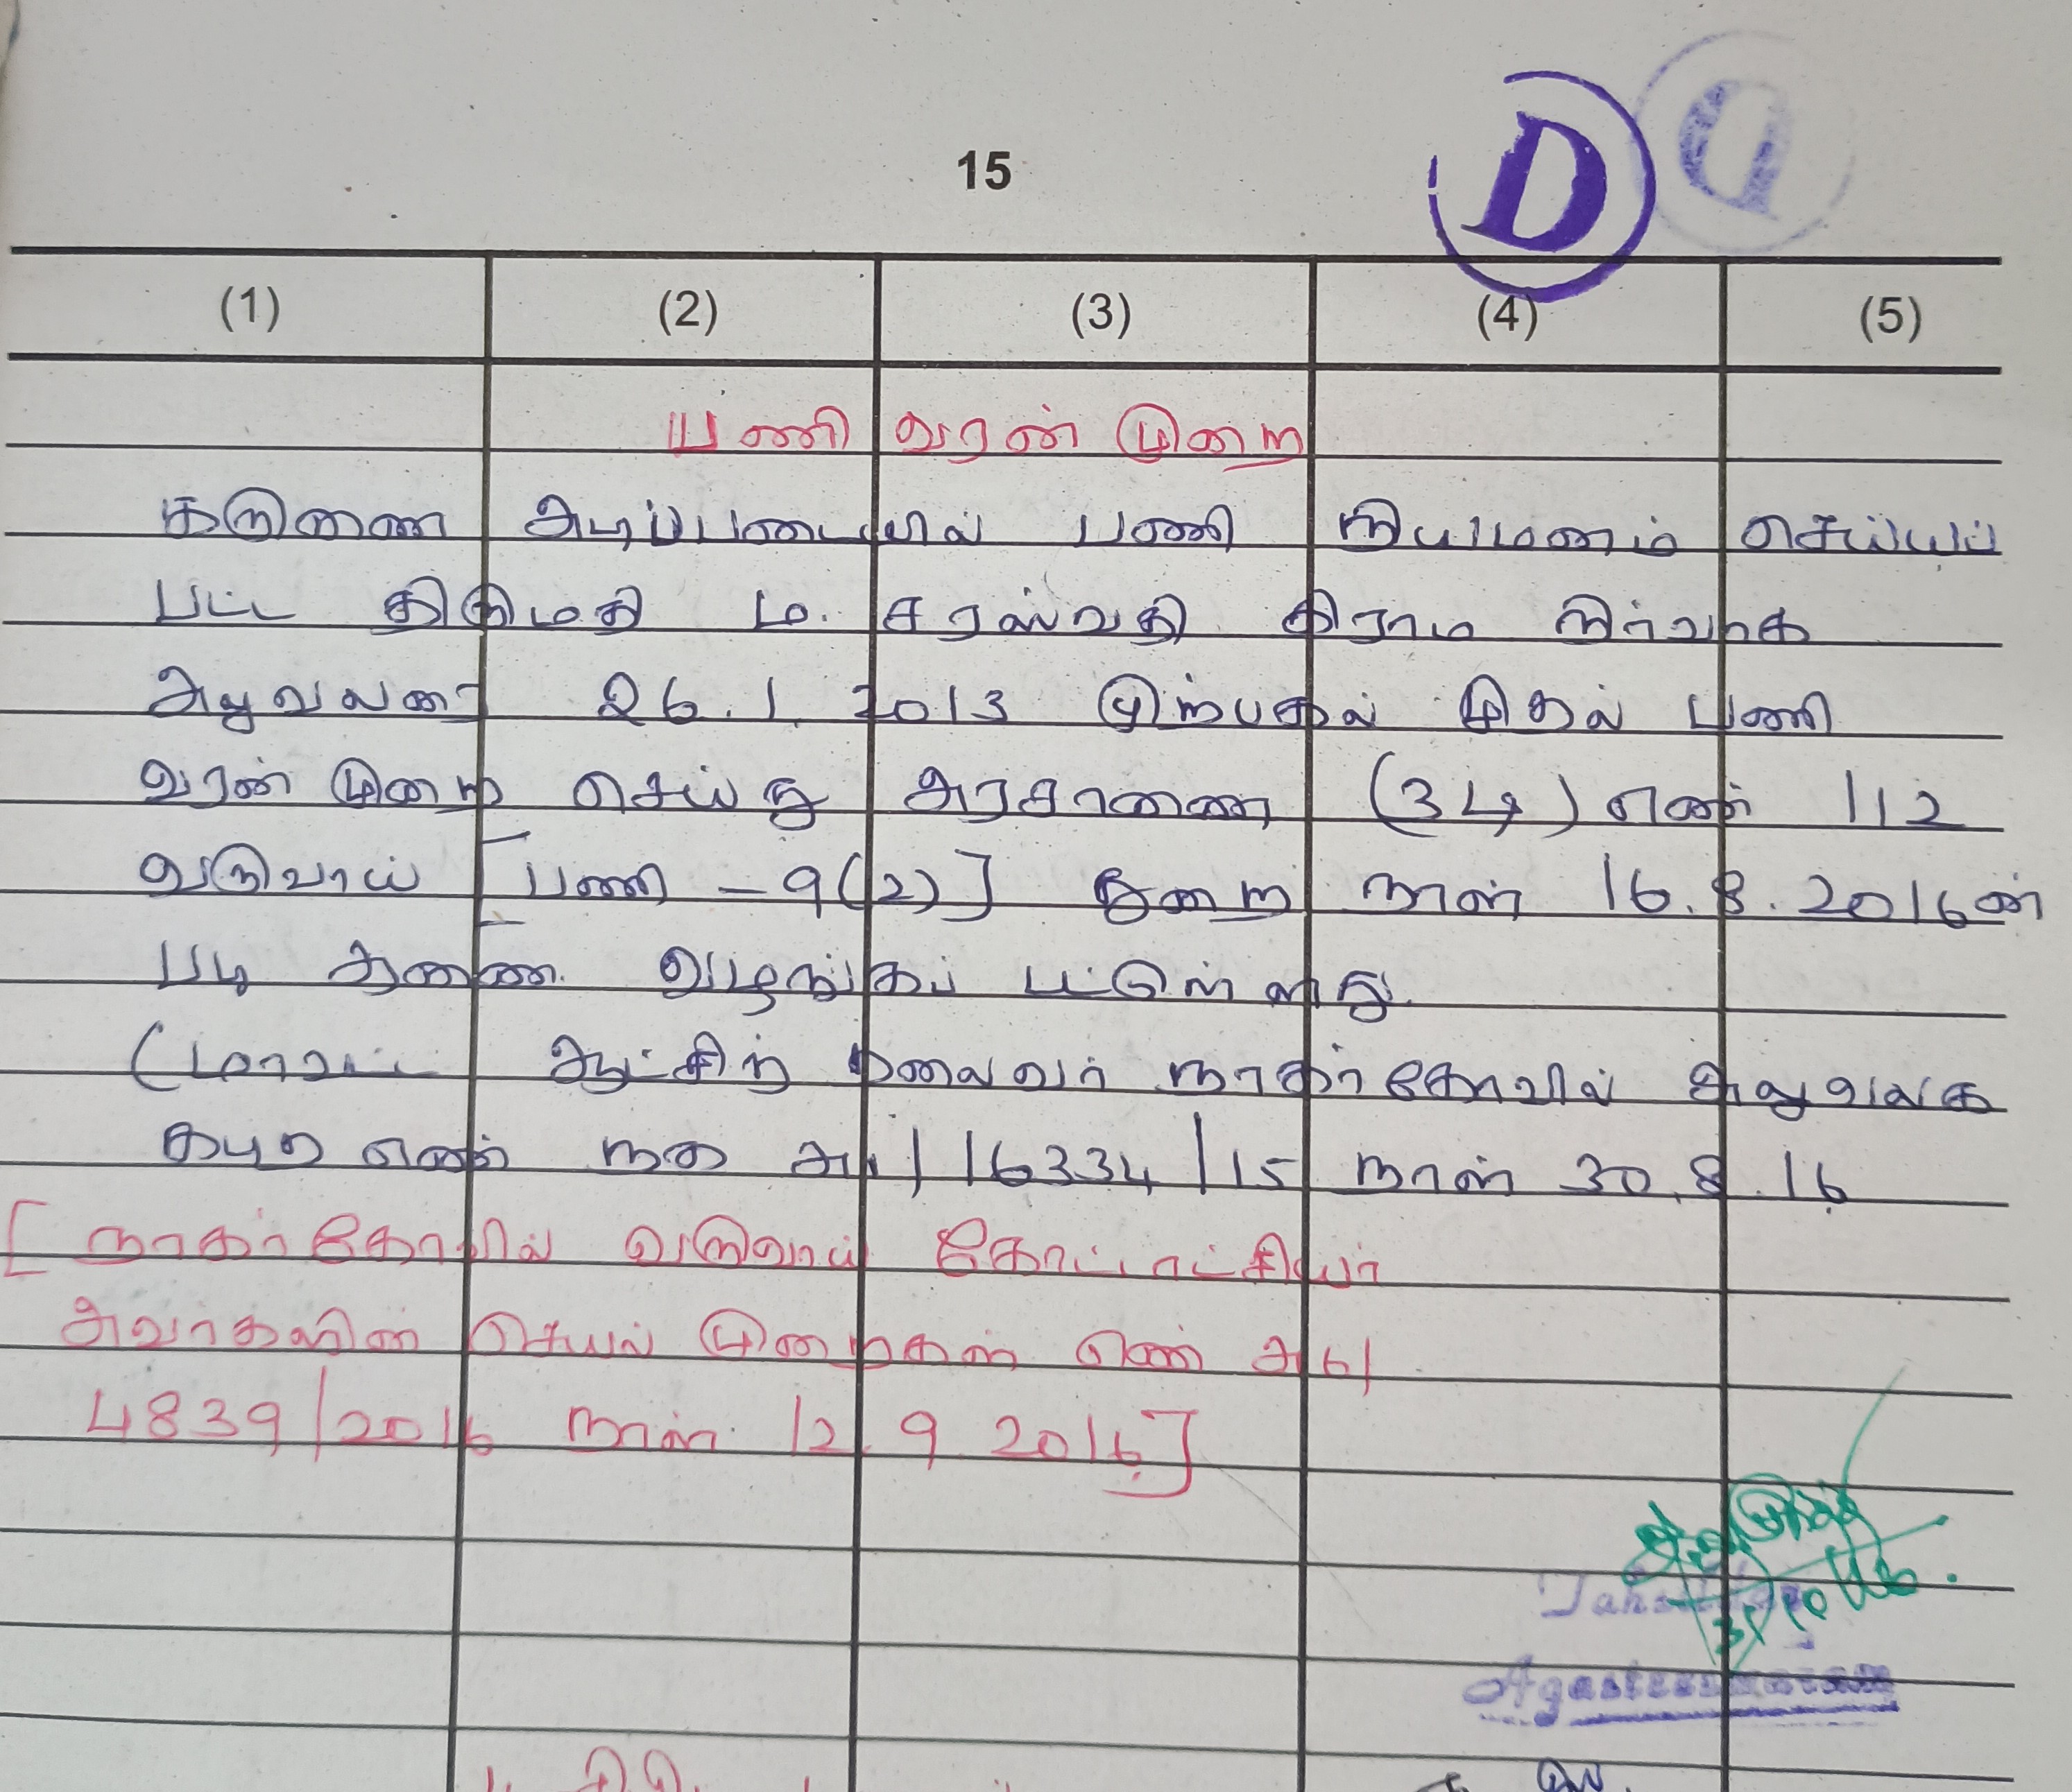 D
15
(1) (2) (3) (4) (5)
பணி வரன் முறை
கருணை அடிப்படையில் பணி நியமனம் செய்யப்
பட்ட திருமதி ம. சரஸ்வதி கிராம நிர்வாக
அலுவலரை 26.1.2013 முற்பகல் முதல் பணி
வரன் முறை செய்து அரசாணை (3டி) எண் 112
வருவாய் [பணி - 9(2)] துறை நாள் 16.8.2016ன்
படி ஆணை வழங்கப் பட்டுள்ளது.
(மாவட்ட ஆட்சித் தலைவர் நாகர்கோவில் அலுவலக
கடித எண் நக அ1/16334/15 நாள் 30.8.16
[நாகர்கோவில் வருவாய் கோட்டாட்சியர்
அவர்களின் செயல் முறைகள் எண் அ6/
4839/2016 நாள் 12.9 2016]
31/10/16.
Tahsildar
Agasteeswaram